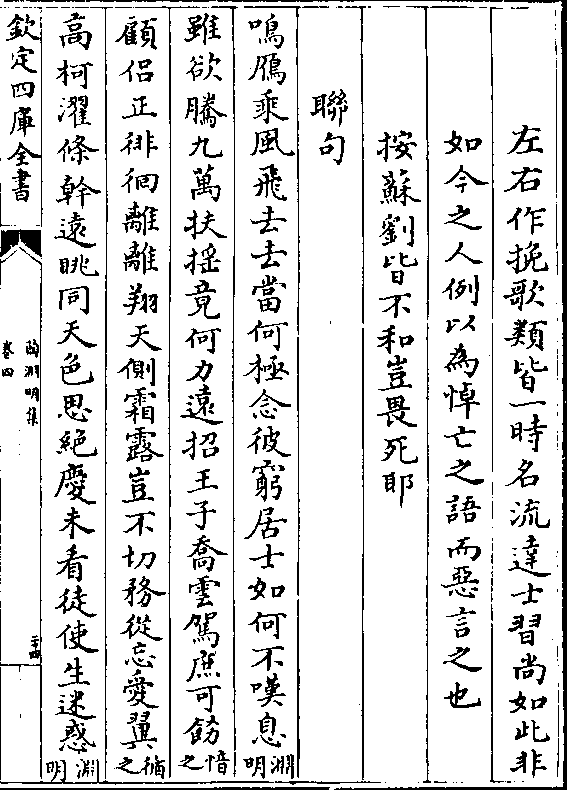 左右作挽歌類皆一時名流達士習尚如此非
如今之人例以為悼亡之語而惡言之也
按蘇劉皆不和豈畏死耶
聯句
鳴鴈乘風飛去去當何極念彼窮居士如何不嘆息淵明
雖欲騰九萬扶揺竟何力遠招王子喬雲駕庶可飭愔之
顧侣正徘徊離離翔天側霜露豈不切務從忘愛翼循之
高柯濯條幹遠眺同天色思絶慶未看徒使生迷惑淵明
欽定四庫全書
陶淵明集
卷四
二十四